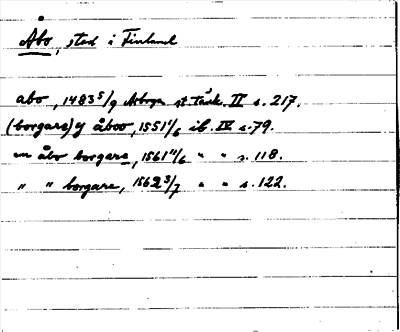 Åbo, stad i Finland
abo, 1483 5/9 Arboga st. Tänk. II s. 217.
(borgare) y åboo, 1551 1/6 ib. IV s. 79.
en åbo borgare, 1561 11/6 " " s. 118.
" " borgare, 1562 3/7 " " s. 122.